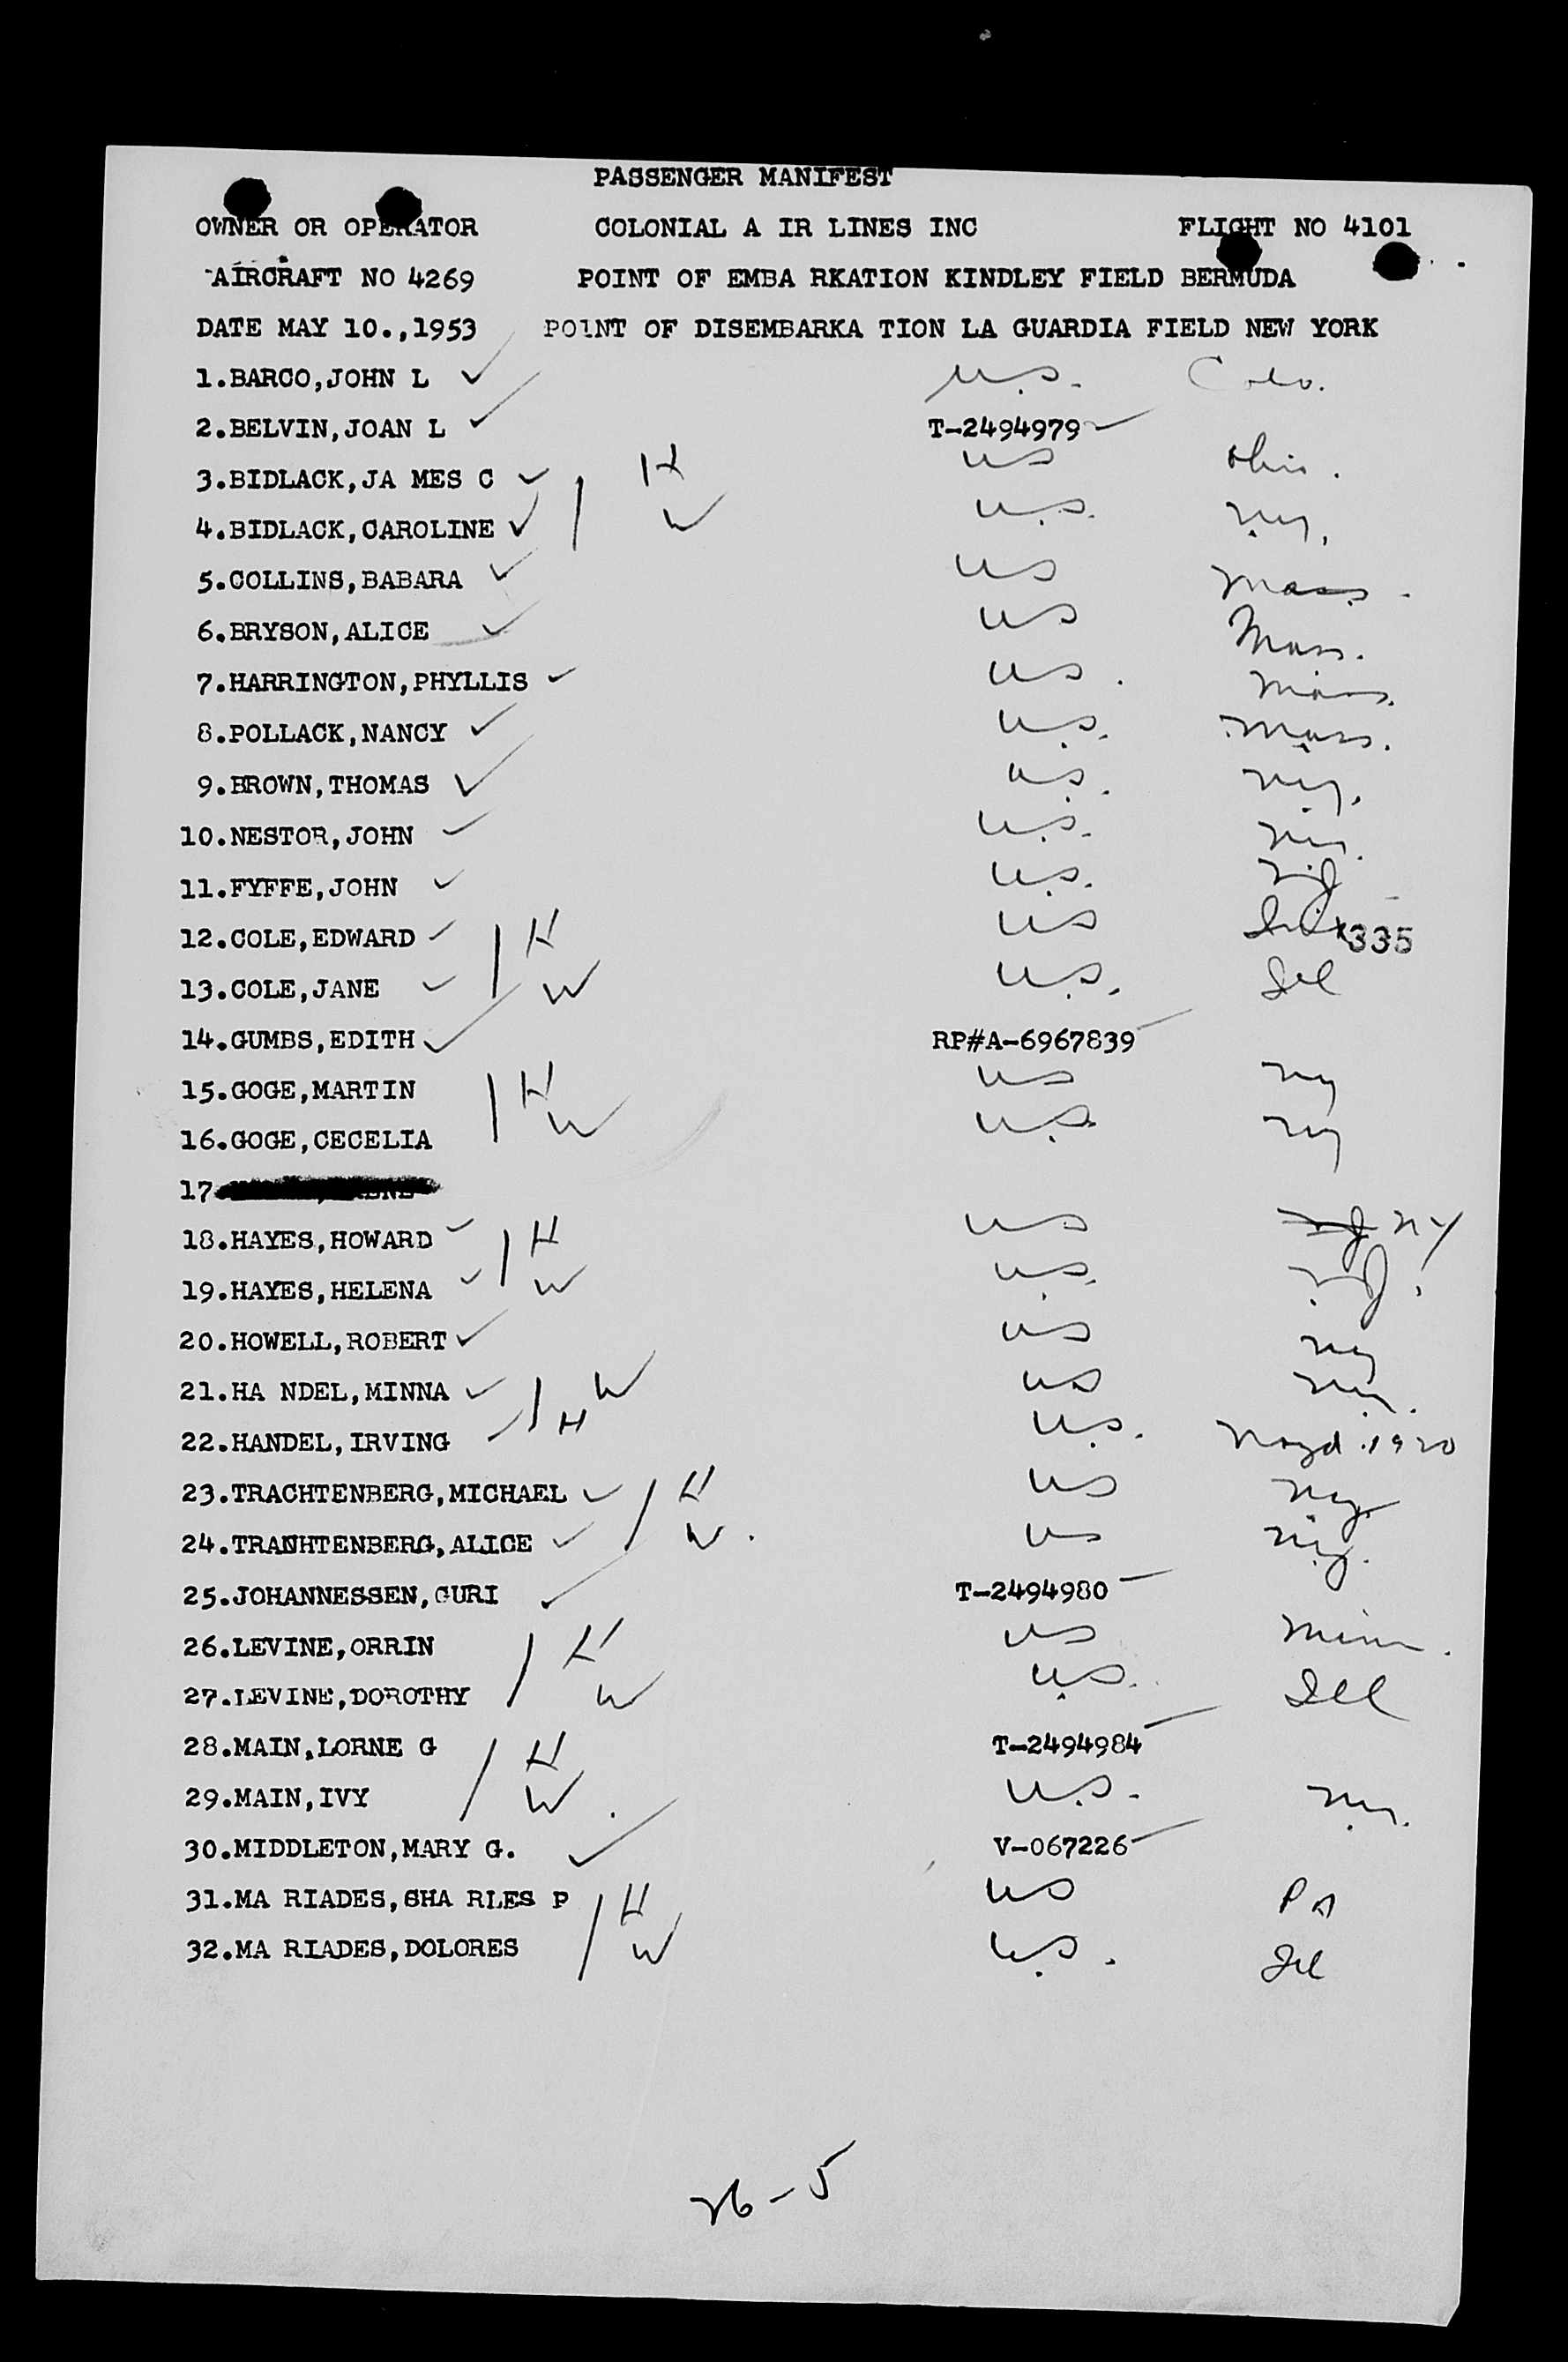 PASSENGER MANIFEST
OWNER OR OPERATOR COLONIAL A IR LINES INC FLIGHT NO 4101
AIRCRAFT NO 4269 POINT OF EMBA RKATION KINDLEY FIELD BERMUDA
DATE MAY 10.,1953 POINT OF DISEMBARKA TION LA GUARDIA FIELD NEW YORK
1.BARCO,JOHN L ✓ U.S. Colo.
2.BELVIN,JOAN L ✓ T-2494979 ✓
3.BIDLACK,JA MES C ✓ H US Ohio.
4.BIDLACK,CAROLINE ✓ W U.S. NY.
5.COLLINS,BABARA ✓ US Mass.
6.BRYSON,ALICE ✓ US Mass.
7.HARRINGTON,PHYLLIS ✓ US. Mass.
8.POLLACK,NANCY ✓ U.S. Mass.
9.BROWN,THOMAS ✓ U.S. NY.
10.NESTOR,JOHN ✓ U.S. NY.
11.FYFFE,JOHN ✓ U.S. NJ
12.COLE,EDWARD ✓ H US 335
13.COLE,JANE ✓ W U.S. Ill
14.GUMBS,EDITH ✓ RP#A-6967839
15.GOGE,MARTIN H US NY
16.GOGE,CECELIA W U.S. NY
17
18.HAYES,HOWARD ✓ H US NJ NY
19.HAYES,HELENA ✓ W U.S. N.J.
20.HOWELL,ROBERT ✓ US NY
21.HA NDEL,MINNA ✓ W US NY.
22.HANDEL,IRVING ✓ H U.S. 1920
23.TRACHTENBERG,MICHAEL ✓ H US NY
24.TRACHTENBERG,ALICE ✓ W. US N.Y.
25.JOHANNESSEN,GURI ✓ T-2494980
26.LEVINE,ORRIN H US Minn.
27.LEVINE,DOROTHY W U.S. Ill
28.MAIN,LORNE G H T-2494984
29.MAIN,IVY W. U.S. NY.
30.MIDDLETON,MARY G. ✓ V-067226
31.MA RIADES,CHA RLES P H US PA
32.MA RIADES,DOLORES W U.S. Ill
26-5